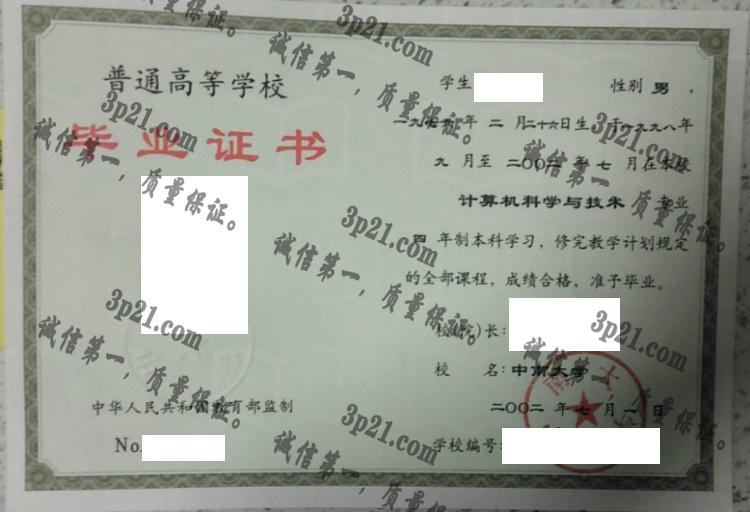 普通高等学校
毕业证书
中华人民共和国教育部监制
No.
学生 性别 男 ，
月二十六日生，于一九九八年
九 月至 二〇〇二 年 七 月在本
计算机科学与技术 专业
四 年制本科学习，修完教学计划规定
的全部课程，成绩合格，准予毕业。
校(院)长：
校 名：中南大学
二〇〇二 年 七 月 一 日
学校编号：
3p21.com
诚信第一，质量保证。
3p21.com
诚信第一，质量保证。
3p21.com
诚信第一，质量保证。
3p21.com
诚信第一，质量保证。
3p21.com
诚信第一，质量保证。
3p21.com
诚信第一，质量保证。
3p21.com
诚信第一，质量保证。